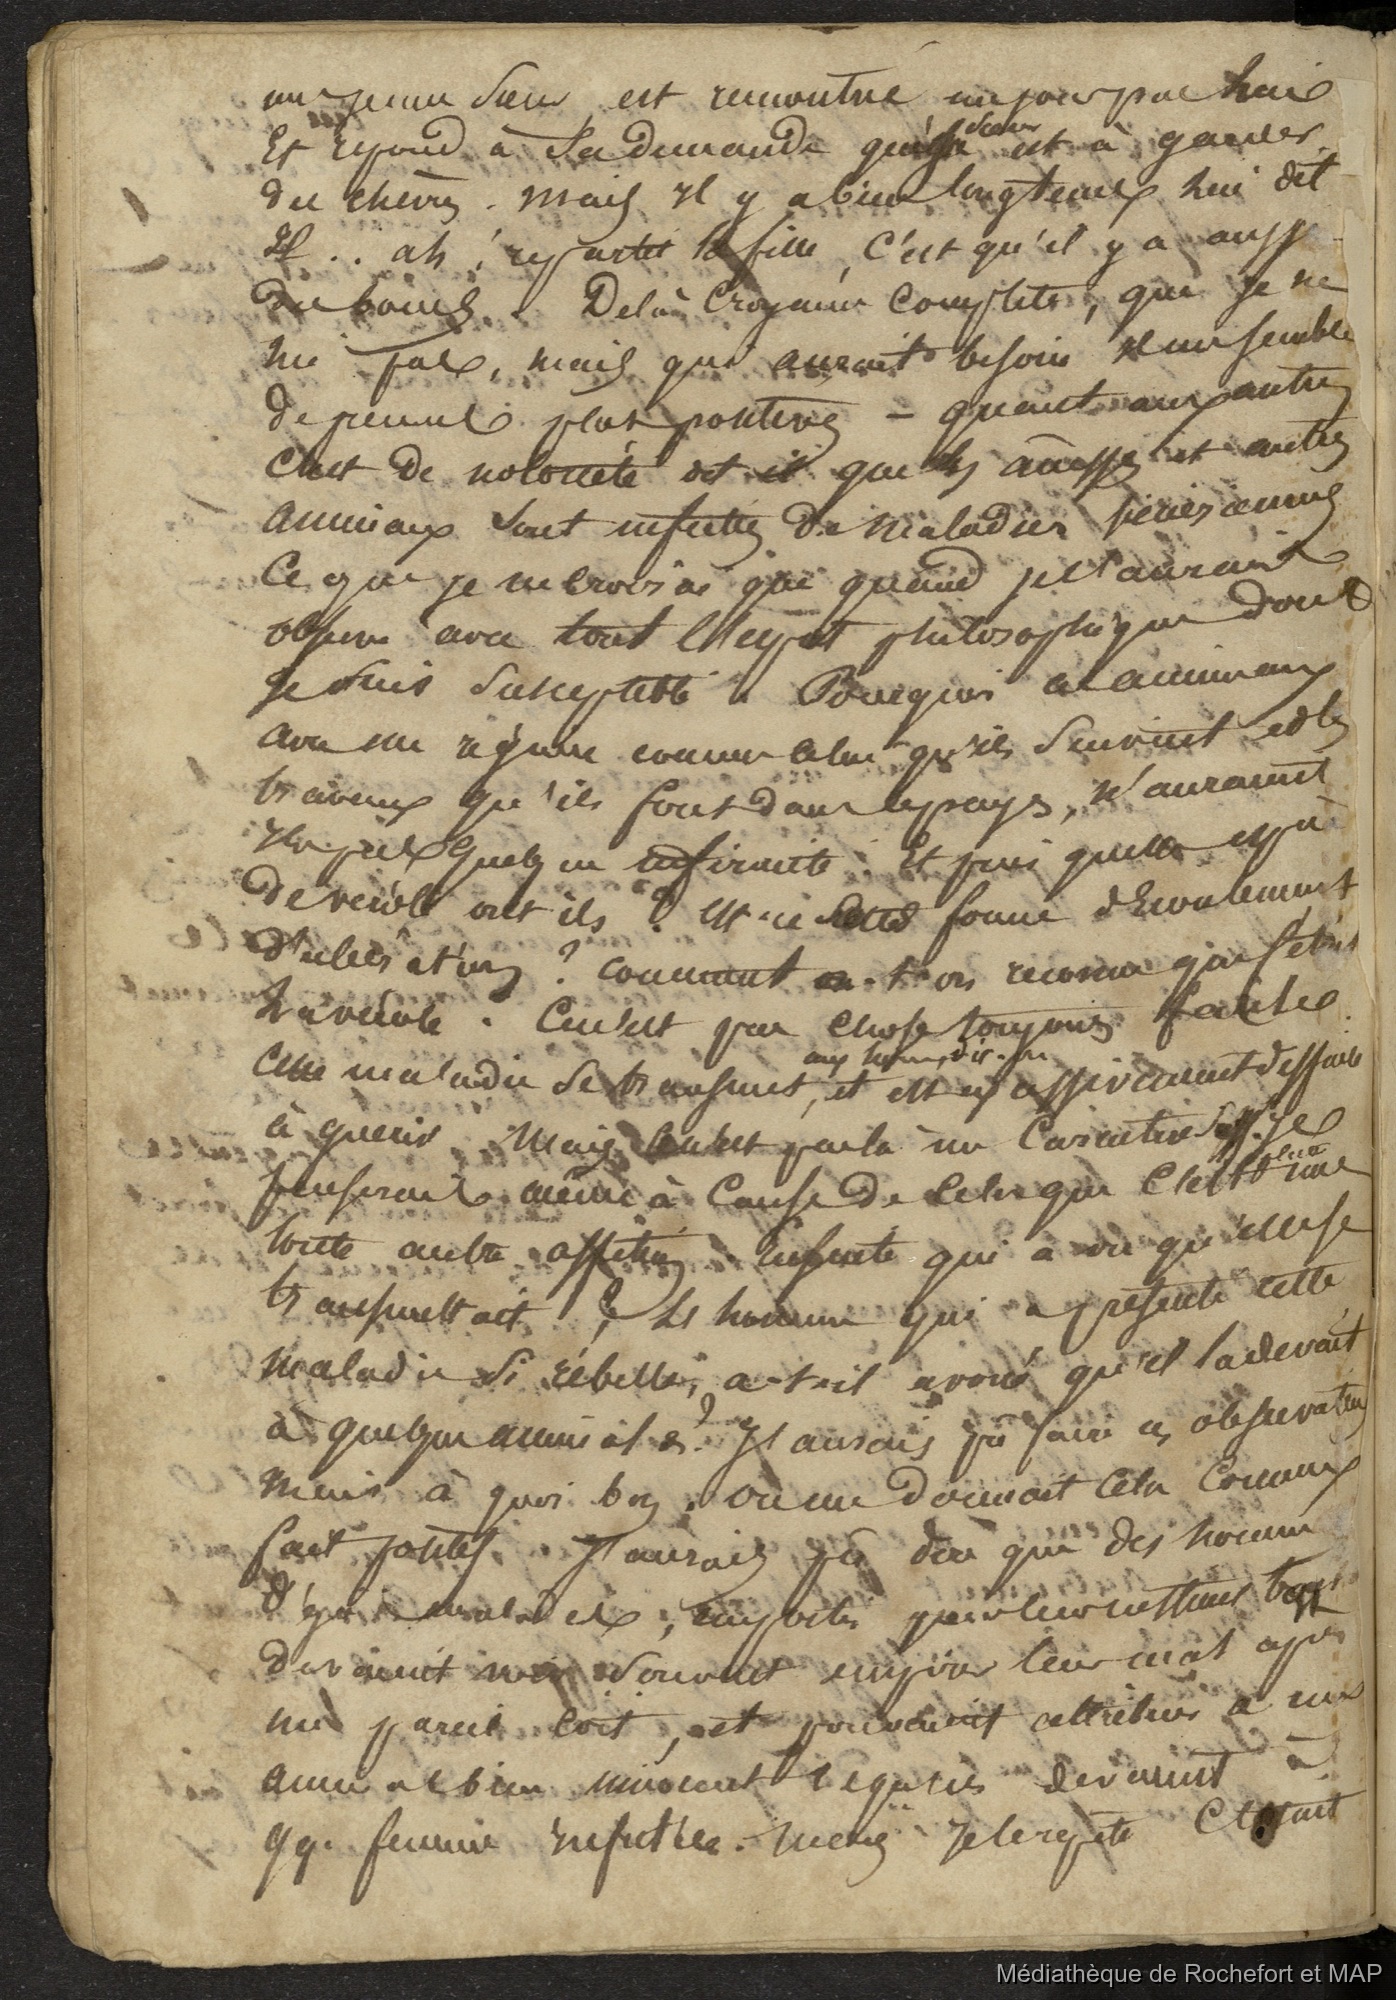 une jeune Sœur est rencontrée un jour par lui
Et repond à Sa demande que sa Sœur est à garder
des chevres. mais il y a bien longtemps lui dit
il .. ah ! repartit la fille, c'est qu'il y a aussi
des boucs. De là croyance complete, que je ne
nie pas, mais qui aurait besoin il me semble
de preuves plus positives – quant aux autres
c'est de notorieté dit il que les ânesses et autres
animaux sont infectés de maladies
Ce que je ne croirai que quand je l'aurais
observé avec tout l'esprit philosophique dont
je suis susceptible. Pourquoi ces animaux
avec un régime comme celui qu'ils suivent et les
travaux qu'ils font dans le pays, n'auraient
ils pas quelque infirmité. Et puis quelle espèce
de verole ont ils ? est ce sous forme d'Ecoulement
d'ulcérations ? comment a-t-on reconnu que c'était
la vérole. Ce n'est pas chose toujours facile.
aux hommes, dit-on
Cette maladie se transmet, et est excessivement difficile
à guerir. Mais ce n'est pas là un Caractère Je
penserais même à Cause de Cela que c'est plutot une
toute autre affection. Ensuite qui a vu qu'elle se
transmettait ? Les hommes qui a présenté cette
maladie si rébelle, a-t-il avoué qu'il la devait
à quelque animal ? J'aurais pu faire ces observations
mais à quoi bon. on me donnait cela comme
fait positif. J'aurais pu dire que des hommes
déja malades, emportés par leurs
devaient voir souvent empirer leur mal après
un pareil coït, et pouvaient attribuer à un
animal bien innocent ce qu'ils devaient à
qq. femme infectée. Mais je le repète C'etait